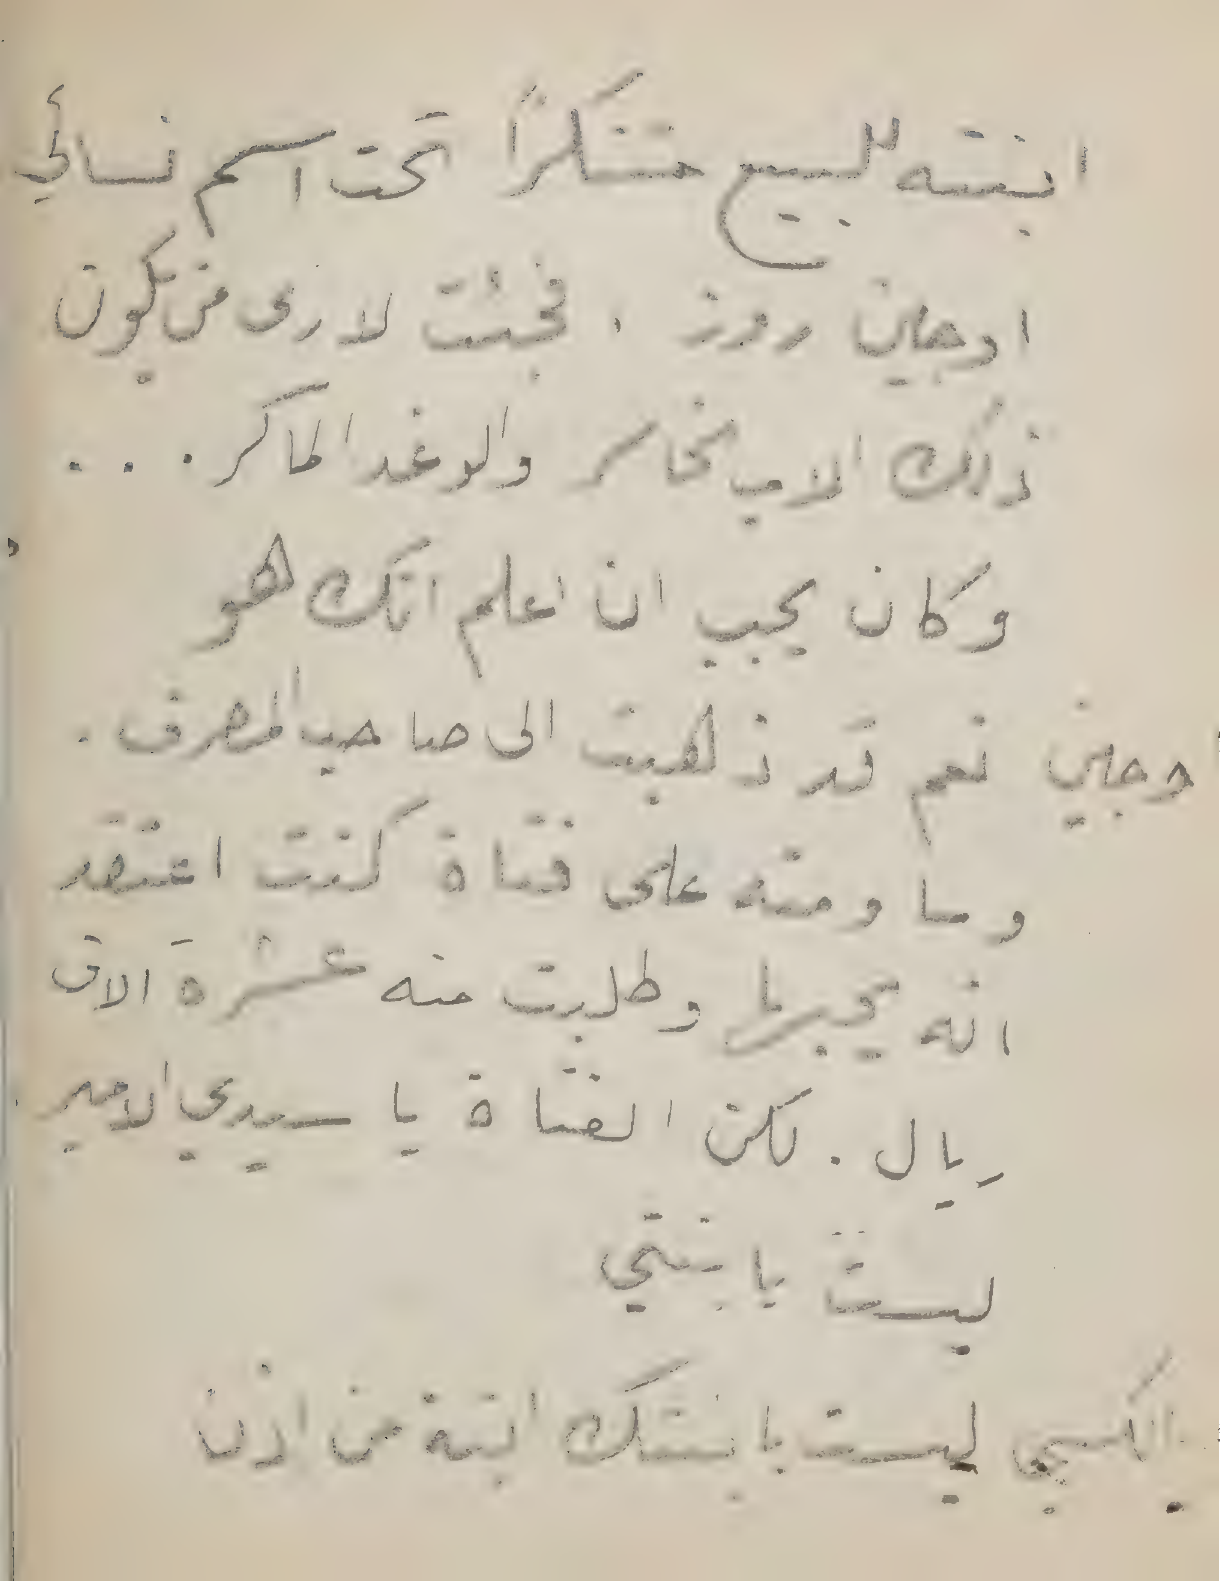 ابنته للبيع متنكرًا تحت اسم نسائي
اوجين روز . فجئت لارى من يكون
ذلك الاب الخاسر والوغد الماكر . . .
وكان يجب ان اعلم انك هو
اوجين نعم قد ذهبت الى صاحب المصرف .
وساومته على فتاة كنت اعتقد
انه يجبرها وطلبت منه عشرة الاف
ريال . لكن الفتاة يا سيدي الامير
ليست بابنتي
الكسي ليست بابنتك ابنة من اذن